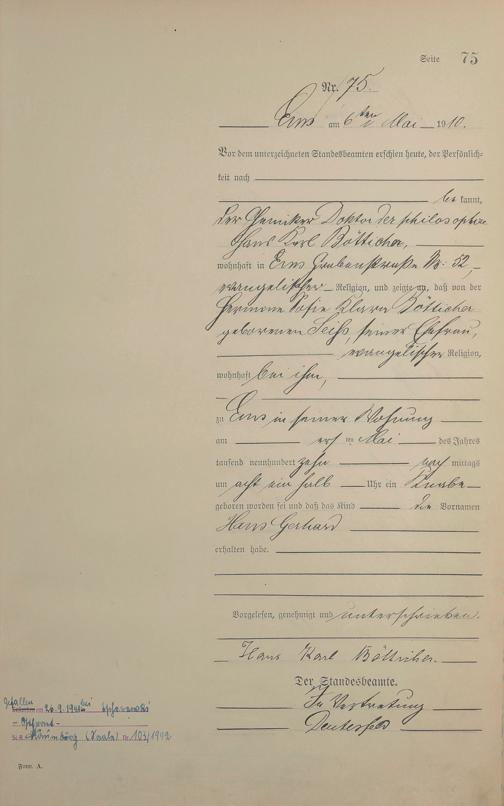 Seite 75
Nr. 75.
Ems am 6ten Mai 1910.
Vor dem unterzeichneten Standesbeamten erschien heute, der Persönlich-
keit nach
bekannt,
der Chemiker Doktor der Philosophie
Hans Karl Bötticher,
wohnhaft in Ems Grabenstraße No. 52,
evangelischer Religion, und zeigte an, daß von der
Hermine Sofie Klara Bötticher
geborenen, seiner Ehefrau,
evangelischer Religion,
wohnhaft bei ihm,
zu Ems in seiner Wohnung
am ersten Mai des Jahres
tausend neunhundert zehn nach mittags
um acht ein halb Uhr ein Knabe
geboren worden sei und daß das Kind die Vornamen
Hans Gerhard
erhalten habe.
Vorgelesen, genehmigt und unterschrieben.
Hans Karl Bötticher.
Der Standesbeamte.
In Vertretung
gefallen
bei
- Ostfront -
Naumburg (Saale) Nr. 103/1942
Form. A.